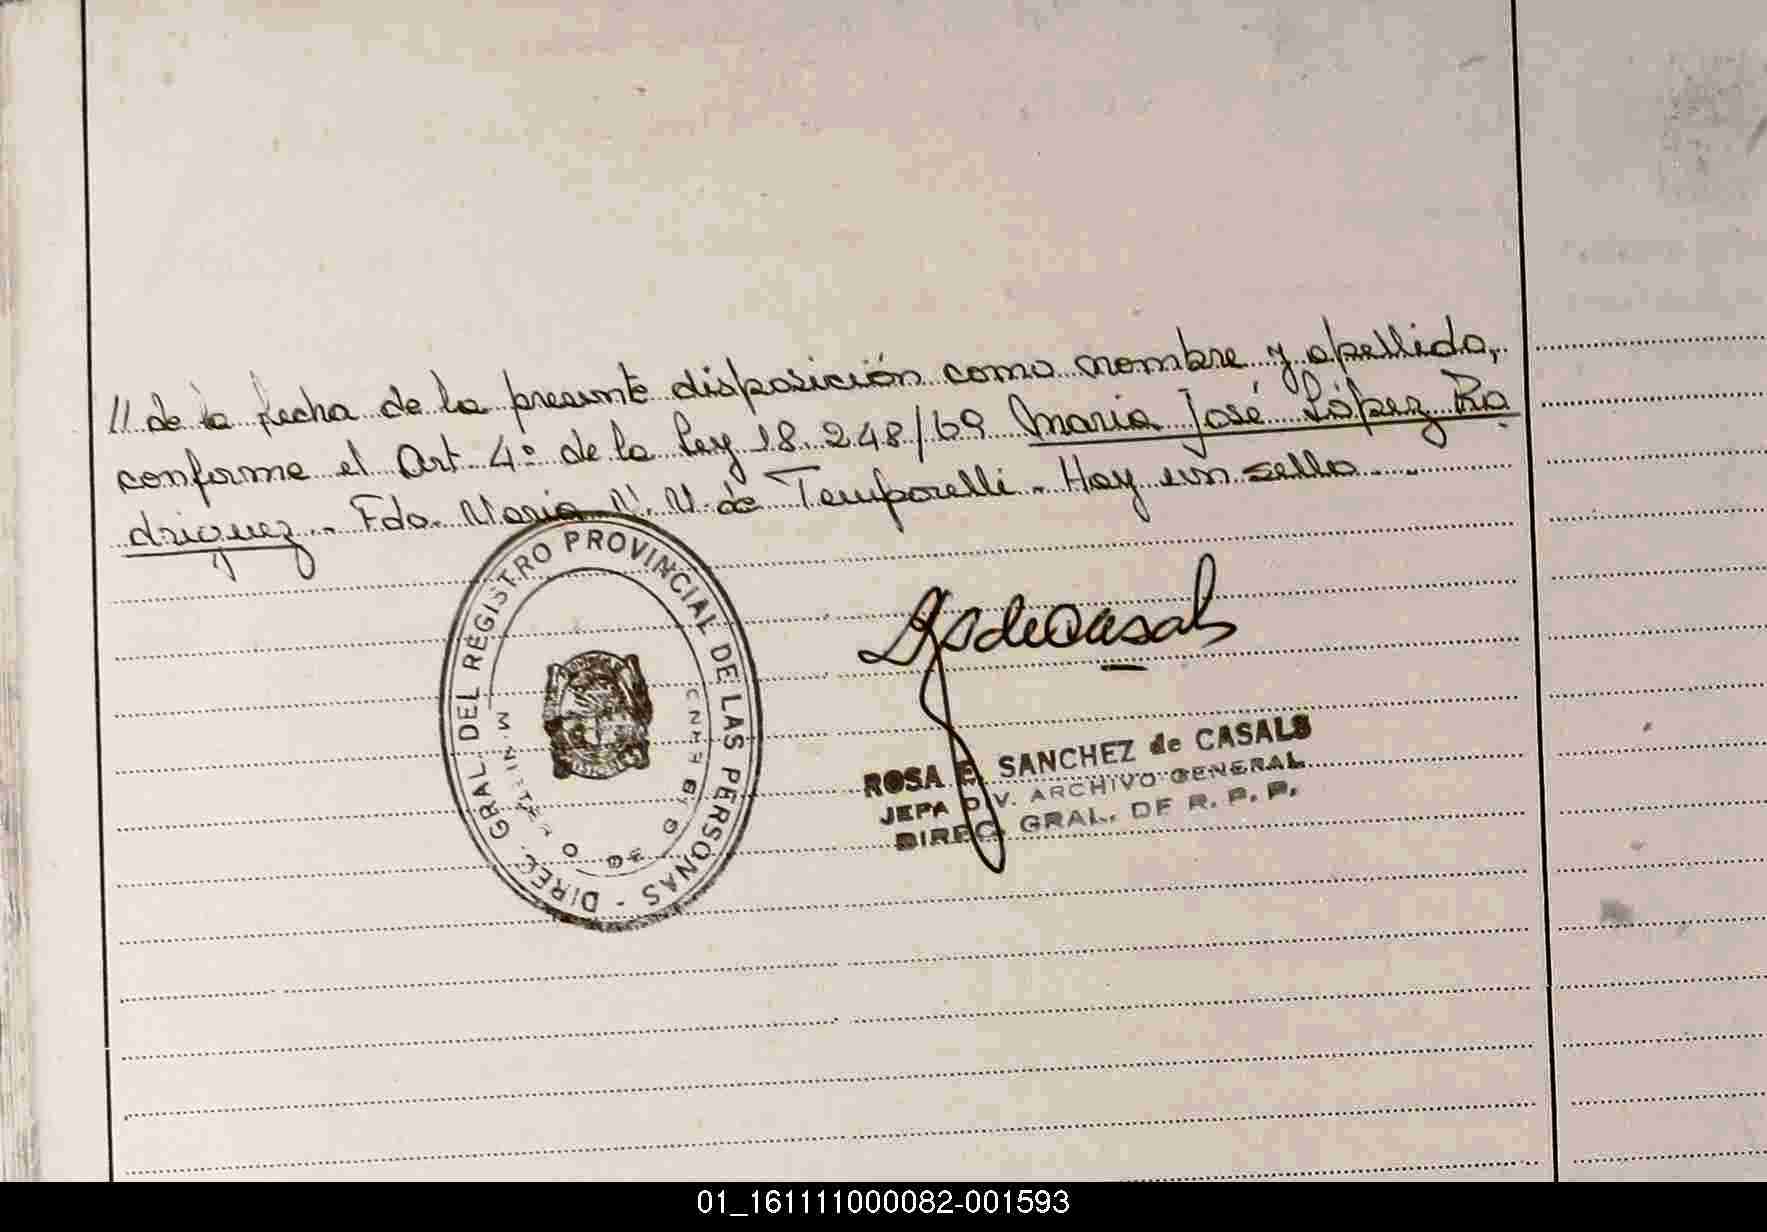 // de la fecha de la presente disposición como nombre y apellido,
conforme el Art 4º de la Ley 18.248/69 Maria José López Ro
driguez.. Fdo. Maria N. N. de Temporelli. Hay un sello
DIREC. GRAL. DEL REGISTRO PROVINCIAL DE LAS PERSONAS -
ROSA E. SANCHEZ de CASALS
JEFA DIV. ARCHIVO GENERAL
DIREC. GRAL. DE R. P. P.
01_161111000082-001593